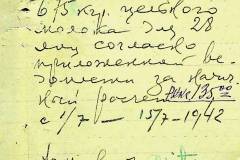 675 кгр. цельного
молока для 28
лиц согласно
приложенной ве-
домости за налич-
ный расчет РМК 135,00
с 1/7 — 15/7 — 1942